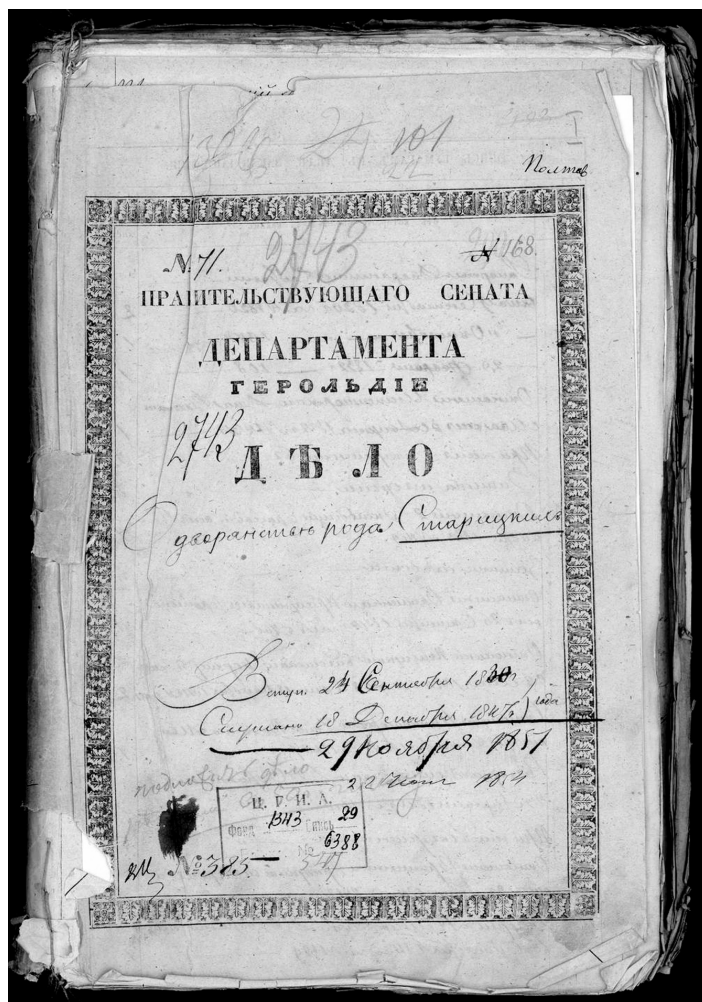 101
Полтав
2743
№ 71. № 168.
ПРАВИТЕЛЬСТВУЮЩАГО СЕНАТА
ДЕПАРТАМЕНТА
ГЕРОЛЬДІИ
2743
ДѢЛО
О дворянствѣ рода Старицкихъ
Вступ. 24 Сентября
Слушано 18 Декабря года
29 Ноября 1851
22 1854
дѣло
Ц. Г. И. А.
Фонд 1343 Опись 29
№ 6388
№ 385